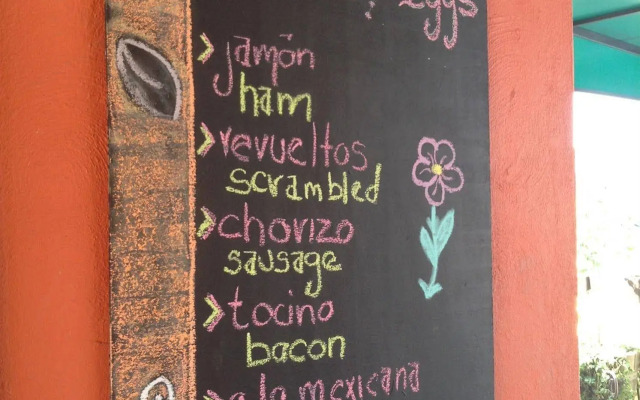 Eggs
> jamón
ham
> revueltos
scrambled
> chorizo
sausage
> tocino
bacon
> a la mexicana